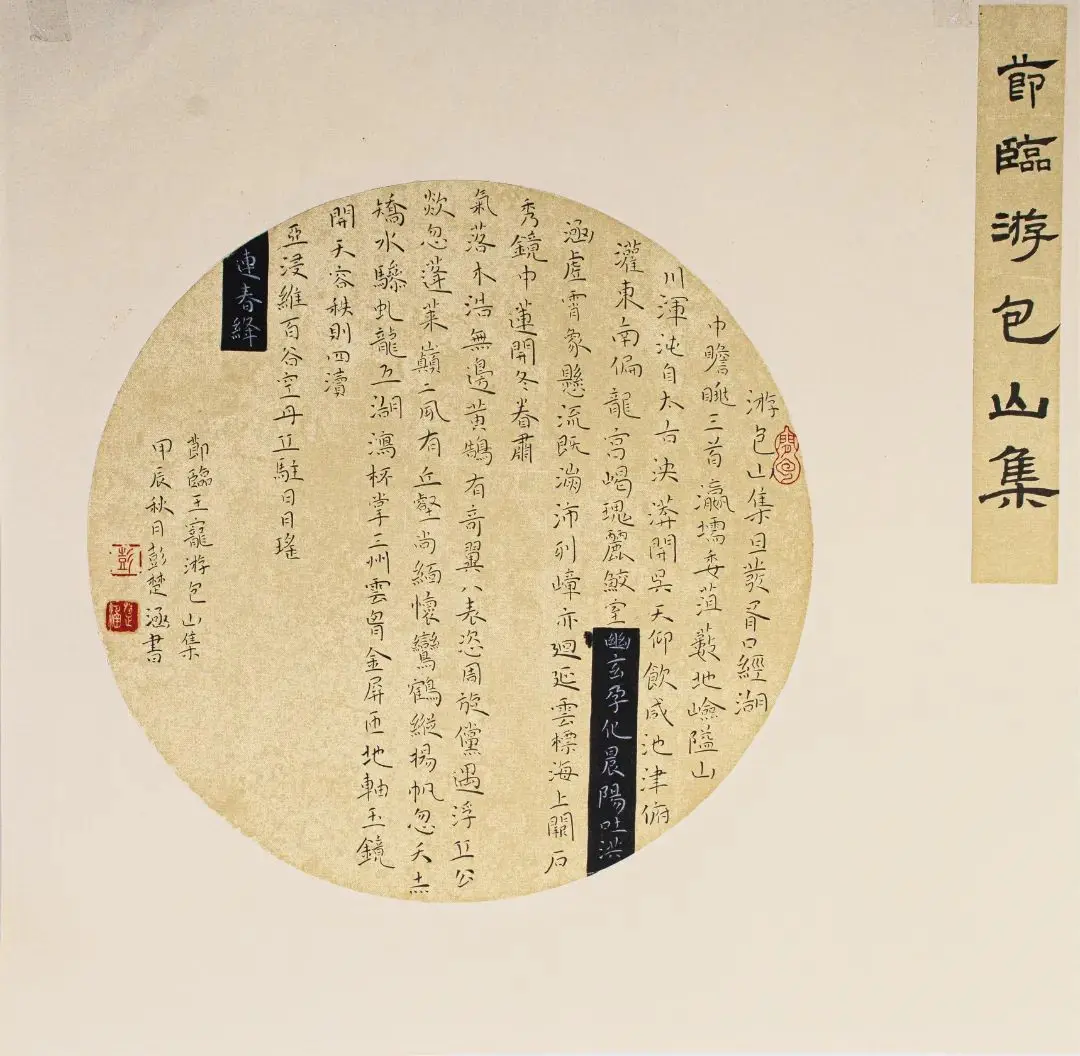 節臨游包山集
游包山集旦發胥口經湖
中瞻眺三首瀛壖委菹藪地嶮隘山
川渾沌自太古泱漭開吳天仰飲咸池津俯
灌東南偏龍宮嵑瑰麗鮫室幽玄孕化晨陽吐洪
涵虛霄象懸流既滿沛列嶂亦迴延雲標海上闕石
秀鏡中蓮開冬眷肅
氣落木浩無邊黃鵠有奇翼八表恣周旋儻遇浮丘公
欻忽蓬萊巔二風有丘壑尚緬懷鸞鶴縱揚帆忽夭
矯水驂虬龍五湖瀉杯掌三州雲胥金屏匝地軸玉鏡
開天容秩則四瀆
亞浸維百谷空丹丘駐日月瑤
連春絳
節臨王寵游包山集
甲辰秋月彭楚涵書
彭
楚涵